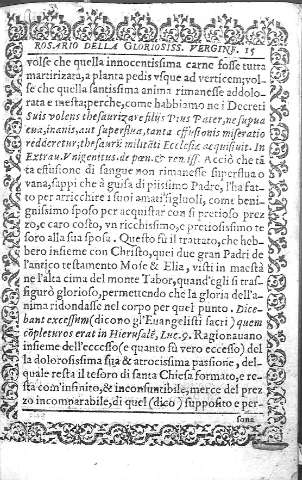 ROSARIO DELLA GLORIOSISS. VERGINE. 15
volse che quella innocentissima carne fosse tutta
martirizata, a planta pedis vsque ad verticem; vol-
se che quella santissima anima rimanesse addolo-
rata e mesta; perche, come habbiamo ne i Decreti
Suis volens thesaurizare filijs Pius Pater, ne superua
cua, inanis, aut superflua, tanta effusionis miseratio
redderetur; thesaurū militāti Ecclesiæ acquisiuit. In
Extrau. Vnigentus. de pœn. & rem. iss. Acciò che tā
ta effusione di sangue non rimanesse superflua o
vana, sappi che à guisa di pijssimo Padre, l'ha fat-
to per arricchire i suoi amati figluoli, come beni-
gnissimo sposo per acquistar con sì pretioso prez
zo, e caro costo, vn ricchissimo, e pretiosissimo te
soro alla sua sposa. Questo fù il trattato, che heb-
bero insieme con Christo, quei due gran Padri de
l'antico testamento Mose & Elia, visti in maestà
ne l'alta cima del monte Tabor, quand'egli si tras-
figurò glorioso, permettendo che la gloria dell'a-
nima ridondasse nel corpo per quel punto. Dice-
bant excessum (dicono gl'Euangelisti sacri) quem
cōpleturus erat in Hierusalē, Luc. 9. Ragionauano
insieme dell'eccesso (e quanto fù vero eccesso) del
la dolorosissima sua & atrocissima passione, del-
quale resta il tesoro di santa Chiesa formato, e re-
sta com'infinito, & inconsuntibile, merce del prez
zo incomparabile, di quel (dico) supposito e per-
sona